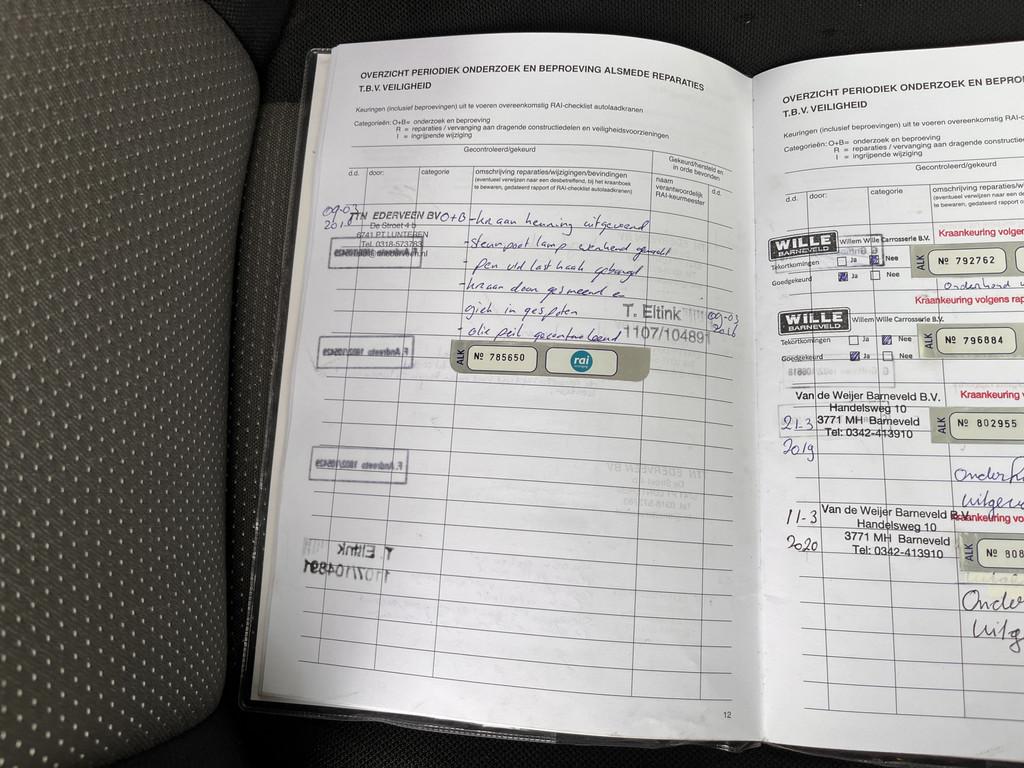 OVERZICHT PERIODIEK ONDERZOEK EN BEPROEVING ALSMEDE REPARATIES
T.B.V. VEILIGHEID
Keuringen (inclusief beproevingen) uit te voeren overeenkomstig RAI-checklist autolaadkranen
Categorieën: O+B= onderzoek en beproeving
R = reparaties / vervanging aan dragende constructiedelen en veiligheidsvoorzieningen
I = ingrijpende wijziging
Gecontroleerd/gekeurd
Gekeurd/hersteld en in orde bevonden
d.d. door: categorie omschrijving reparaties/wijzigingen/bevindingen
(eventueel verwijzen naar een desbetreffend, bij het kraanboek
te bewaren, gedateerd rapport of RAI-checklist autolaadkranen)
naam verantwoordelijk RAI-keurmeester d.d.
09-03 EDERVEEN BV O+B - kraan keuring uitgevoerd
De Stroet 4
6741 PT LUNTEREN
Tel. 0318-573783
- steunpoot lamp werkend gemaakt
- pen v/d last haak geborgd
- kraan door gesmeerd en
giek in gespoten
- olie peil gecontroleerd
T. Eltink
1107/104891
09-03
ALK Nº 785650 rai
F. Andreets 1802/105429
F. Andreets 1802/105429
T. Eltink
1107/104891
12
OVERZICHT PERIODIEK ONDERZOEK EN BEPRO
T.B.V. VEILIGHEID
Keuringen (inclusief beproevingen) uit te voeren overeenkomstig RAI-c
Categorieën: O+B= onderzoek en beproeving
R = reparaties / vervanging aan dragende constructie
I = ingrijpende wijziging
Gecontroleerd/gekeurd
d.d. door: categorie omschrijving reparaties/w
(eventueel verwijzen naar een des
te bewaren, gedateerd rapport of
WILLE BARNEVELD Willem Wille Carrosserie B.V. Kraankeuring volgen
Tekortkomingen Ja Nee
Goedgekeurd Ja Nee
ALK Nº 792762
Onderhoud
Kraankeuring volgens rap
WILLE BARNEVELD Willem Wille Carrosserie B.V.
Tekortkomingen Ja Nee
Goedgekeurd Ja Nee
ALK Nº 796884
Van de Weijer Barneveld B.V. Kraankeuring v
Handelsweg 10
21-3 3771 MH Barneveld
2019 Tel: 0342-413910
ALK Nº 802955
Onderh
uitgev
11-3 Van de Weijer Barneveld B.V. Kraankeuring vo
Handelsweg 10
2020 3771 MH Barneveld
Tel: 0342-413910
ALK Nº 808
Onder
uitg